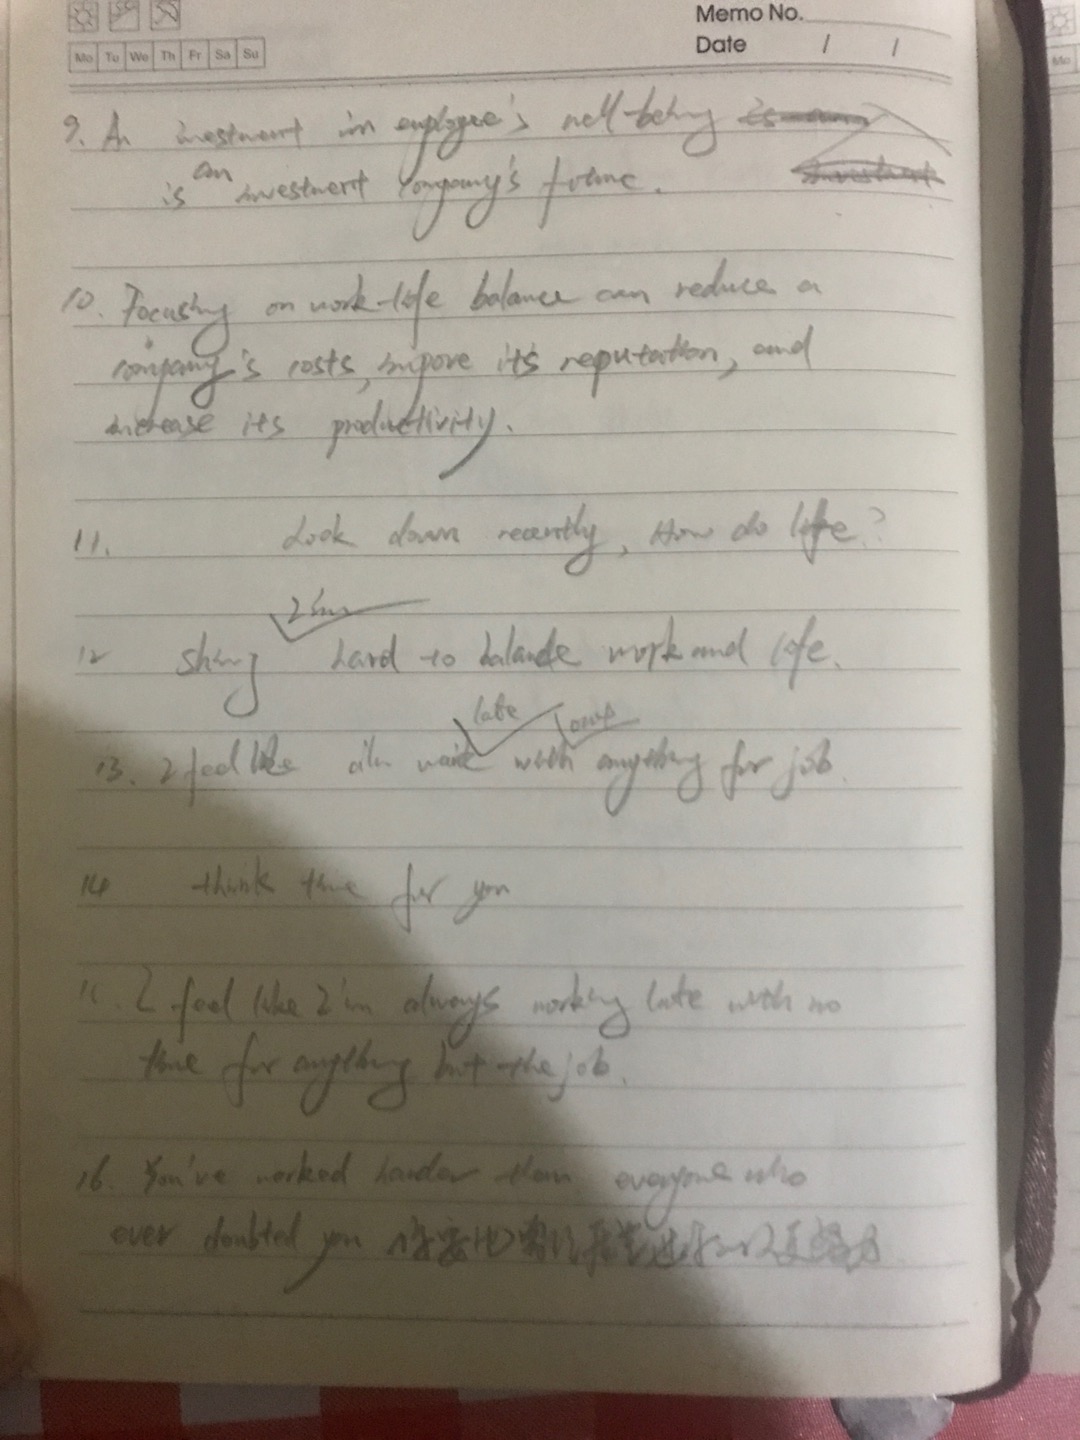 Memo No.
Mo Tu We Th Fr Sa Su
Date / /
9. An investment in employee's well-being
is an investment company's future.
10. Focusing on work-life balance can reduce a
company's costs, impore its reputation, and
increase its productivity.
11. Look down recently, How do life?
I'm
12 hard to balande work and life.
late
13. I feel like with anything for job.
14 think time for you
I feel like I'm always working late with no
time for anything but the job.
16. You've worked harder than everyone who
ever doubted you